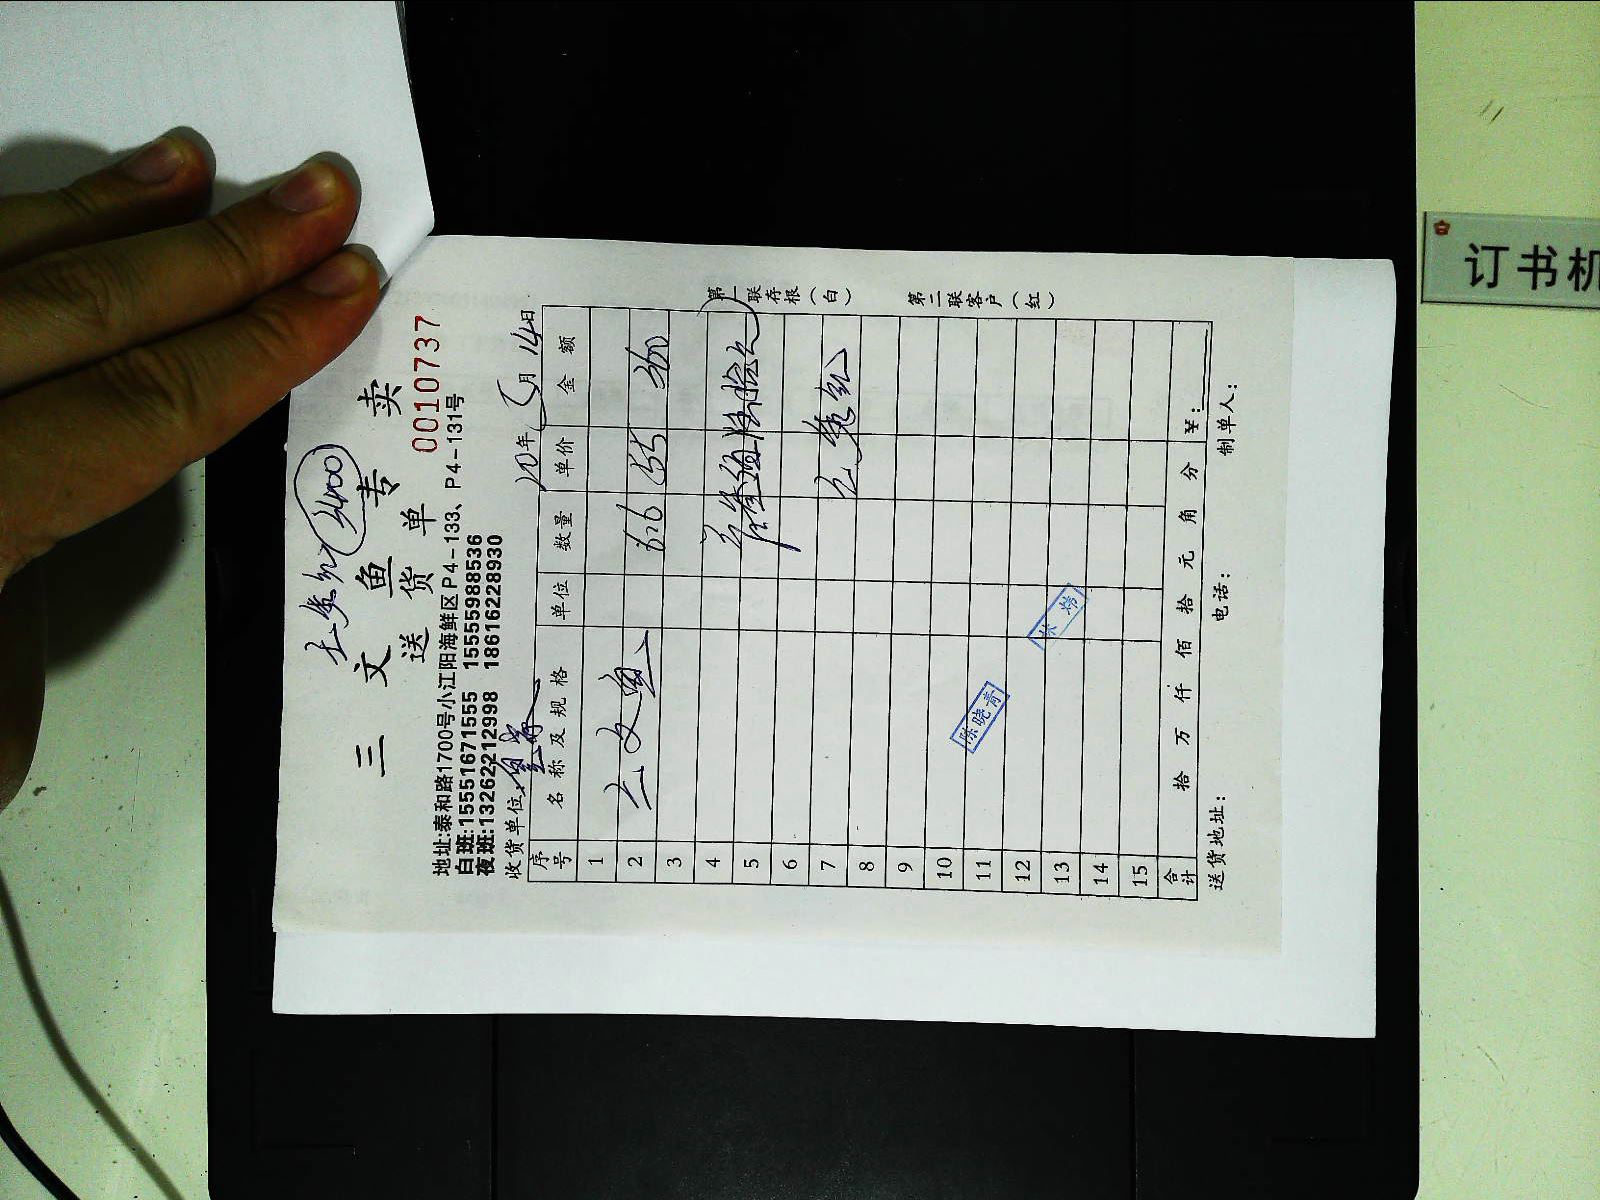 3400
三文鱼专卖
送货单
0010737
地址:泰和路1700号小江阳海鲜区P4-133、P4-131号
白班:15551671555 15555988536
夜班:13262212998 18616228930
收货单位: 20年5月14日
序号 名称及规格 单位 数量 单价 金额
1
2 三文鱼 626 55
3
4
5
6
7
8
9
10
11
12
13
14
15
合计 拾 万 仟 佰 拾 元 角 分 ¥:
送货地址: 电话: 制单人:
第一联存根(白)
第二联客户(红)
陈晓青
订书机